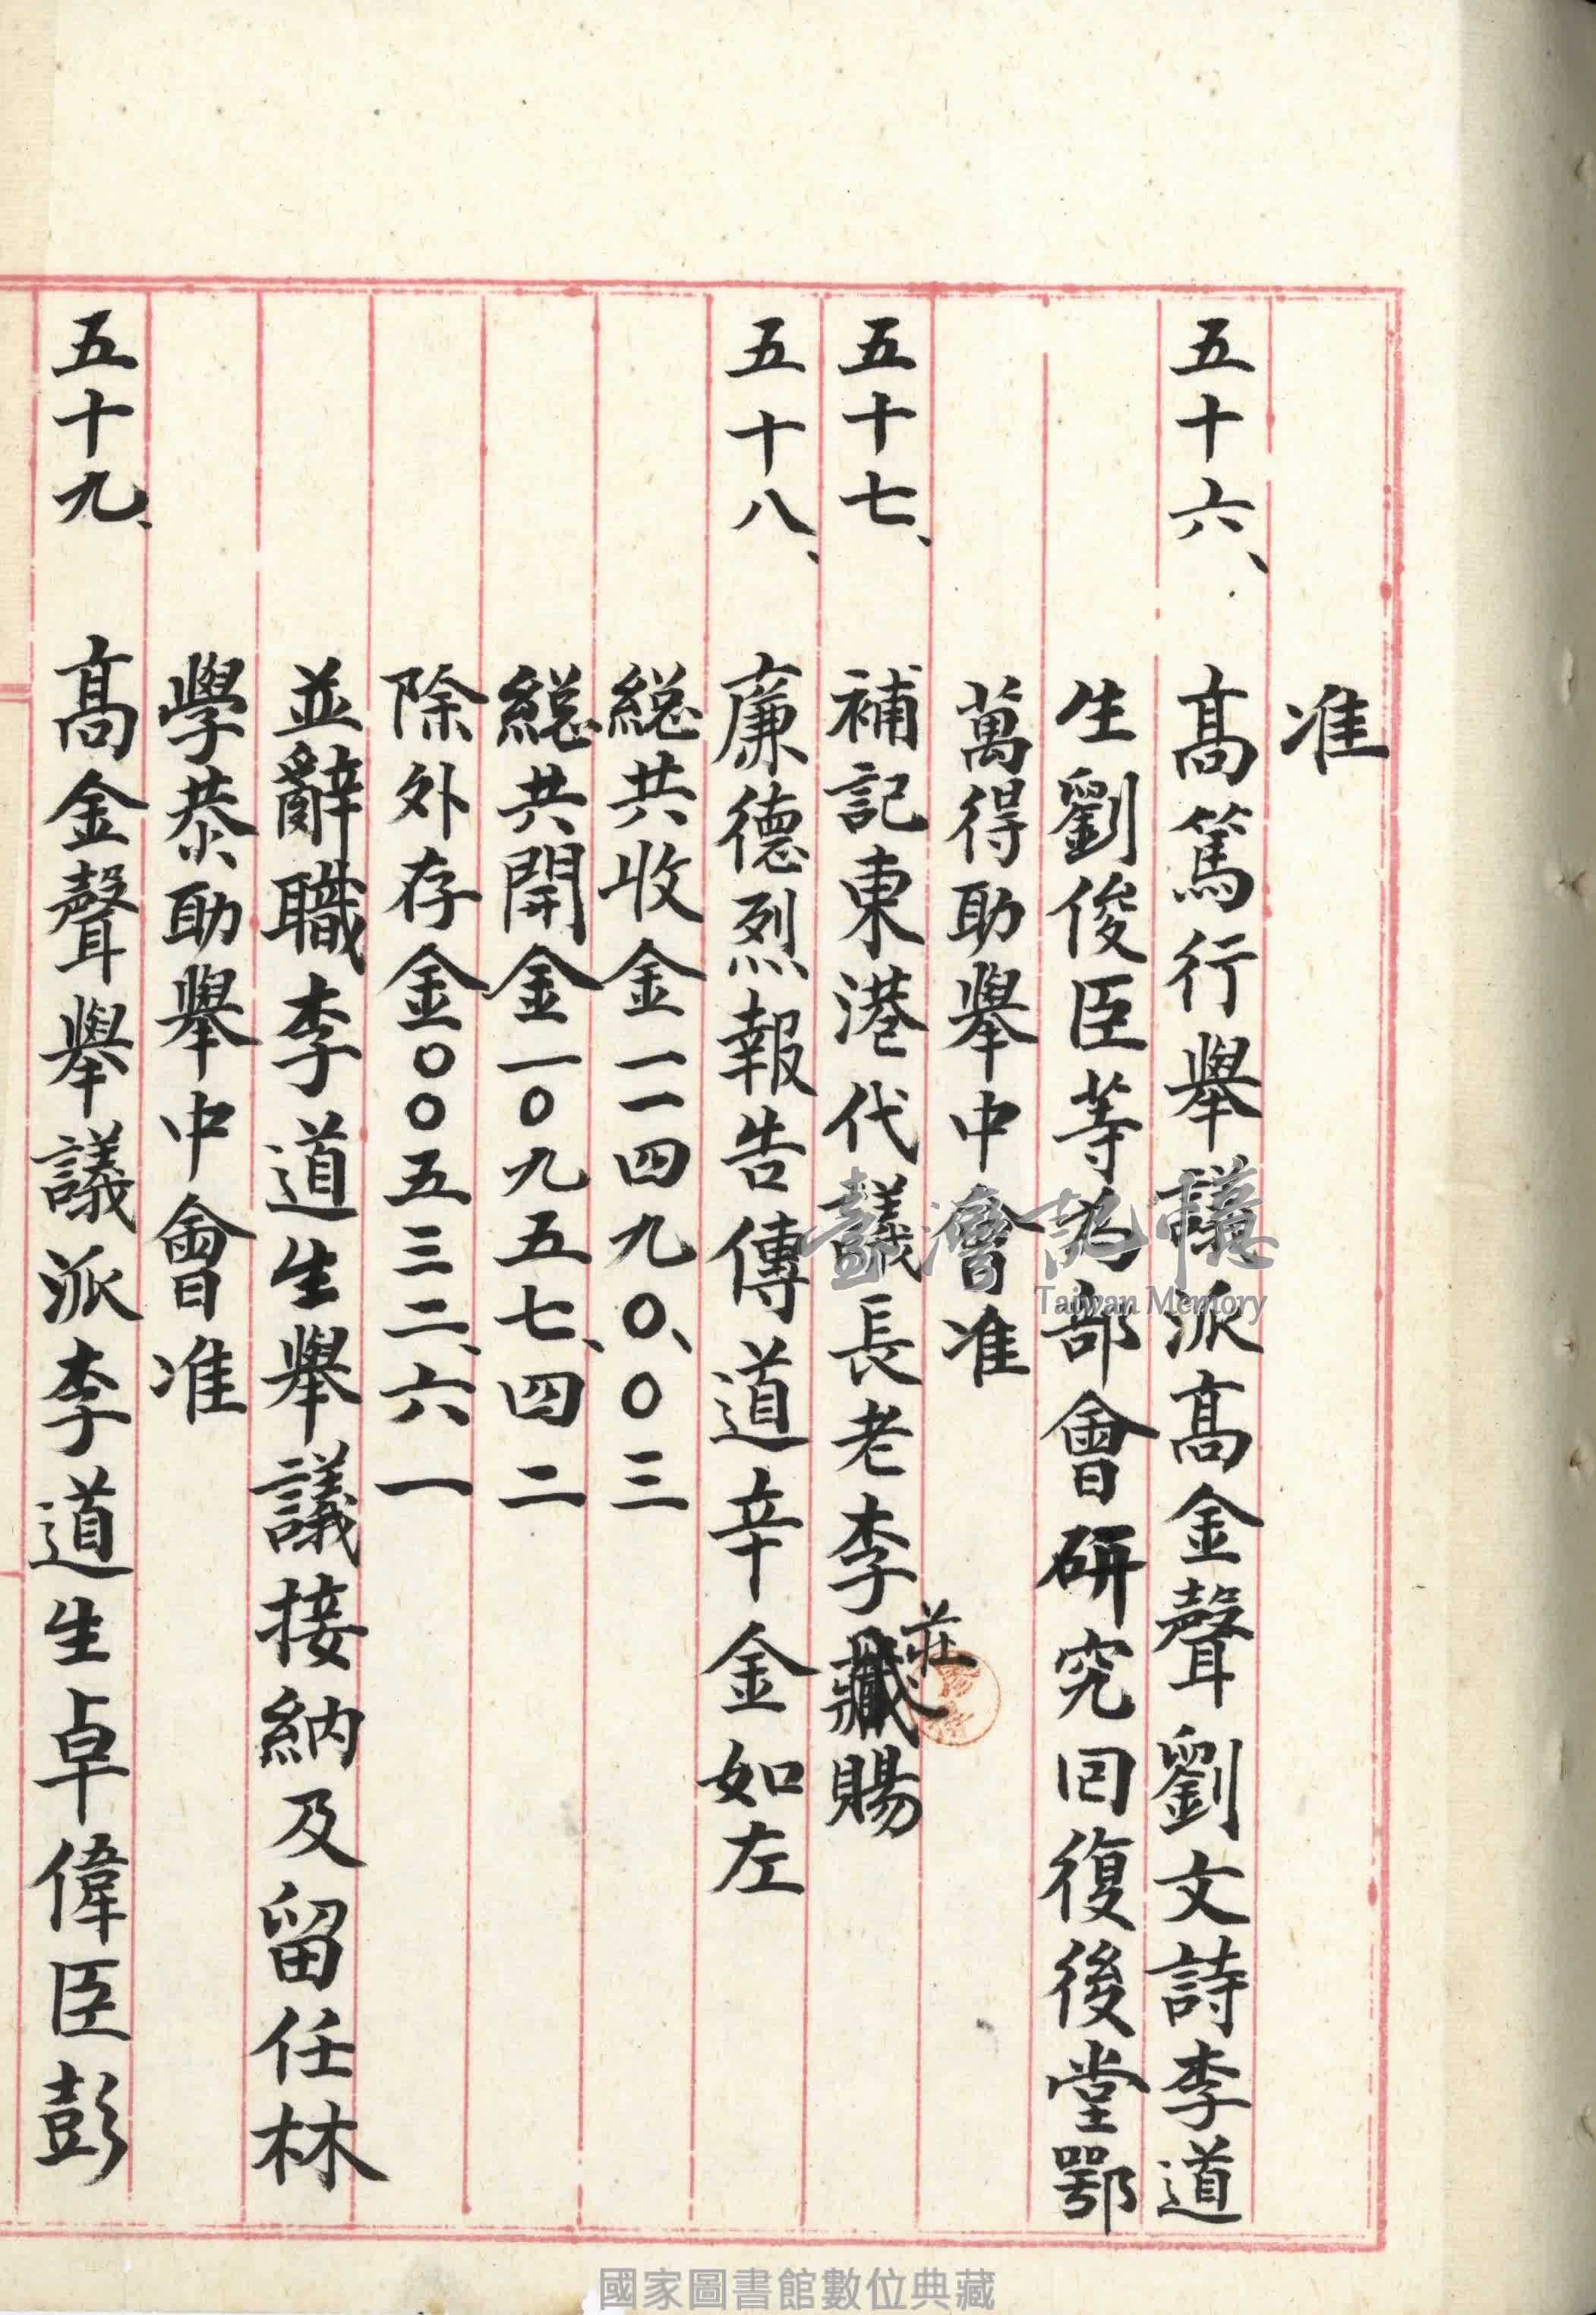 准
五十六、高篤行舉議派高金聲劉文詩李道
生劉俊臣等為部會研究囘復後堂鄂
萬得助舉中會准
五十七、補記東港代議長老李藏賜
莊
五十八、廉德烈報告傳道辛金如左
総共收金一一四九〇、〇三
総共開金一〇九五七、四二
除外存金〇〇五三二、六一
並辭職李道生舉議接納及留任林
學恭助舉中會准
五十九、高金聲舉議派李道生卓偉臣彭
臺灣記憶
Taiwan Memory
國家圖書館數位典藏